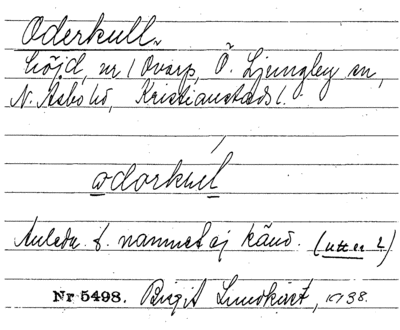 Oderkull.
höjd, nr 1 Ovarp, Ö. Ljungby sn,
N. Åsbo hd, Kristianstads l.
odorkul
Anledn. t. namnet ej känd. (utt. er 2)
Nr 5498. Birgit Lundkvist, 1938.